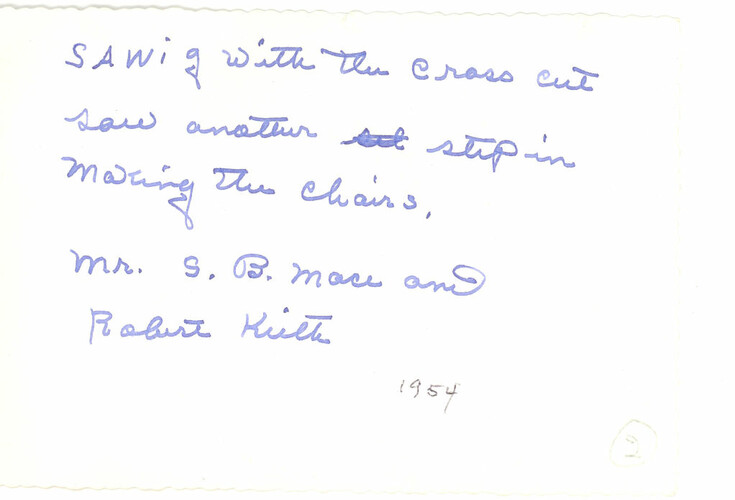 SAWig with the cross cut
saw another set step in
making the chairs.
Mr. S. B. Mace and
Robert Kieth
1954
2